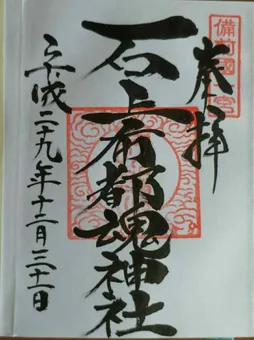 備前國一宮
奉拝
石上布都魂神社
平成二十九年十二月三十一日